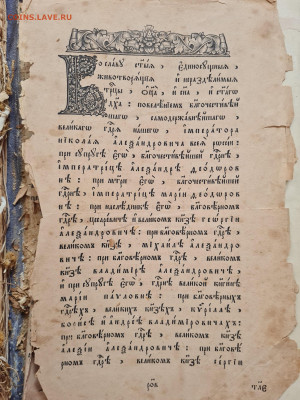 COINS.LAVE.RU
Во славу ст҃ыѧ , є҆диносꙋщныѧ ,
животворѧщїѧ и҆ нераздѣлимыѧ
трⷪ҇цы , ѻ҆ц҃а̀ и҆ сн҃а , и҆ ст҃а́гѡ
дх҃а : повелѣнїемъ бл҃гочестивѣй
шагѡ , самодержавнѣйшагѡ ,
великагѡ гдⷭ҇рѧ нашегѡ , і҆мператора
нїколаѧ а҆леѯандровича всеѧ рѡссїи :
при сꙋпрꙋгѣ є҆гѡ̀ , бл҃гочестивѣйшей гдⷭ҇рнѣ ,
і҆мператрицѣ а҆леѯандрѣ ѳеодѡров
нѣ : при мт҃ри є҆гѡ̀ , бл҃гочестивѣйшей
гдⷭ҇рнѣ , і҆мператрицѣ марїи ѳеодѡров
нѣ : при наслѣдникѣ є҆гѡ̀ , бл҃говѣрномъ
гдⷭ҇рѣ , цесаревичѣ и҆ великомъ кн҃зѣ геѡргїи
а҆леѯандровичѣ : при бл҃говѣрномъ гдⷭ҇рѣ ,
великомъ кн҃зѣ , мїхаилѣ а҆леѯандро
вичѣ : при бл҃говѣрномъ гдⷭ҇рѣ , великомъ
кн҃зѣ владимїрѣ а҆леѯандровичѣ ,
и҆ сꙋпрꙋгѣ є҆гѡ̀ , гдⷭ҇рнѣ великой кн҃гинѣ
марїи паѵловнѣ : при бл҃говѣрныхъ
гдⷭ҇рѣхъ , великихъ кн҃зѣхъ , кѷриллѣ ,
борисѣ и҆ а҆ндреѣ владимїровичахъ :
при бл҃говѣрномъ гдⷭ҇рѣ , великомъ кн҃зѣ
а҆леѯїи а҆леѯандровичѣ : при бл҃говѣ
рномъ гдⷭ҇рѣ , великомъ кн҃зѣ сергїи